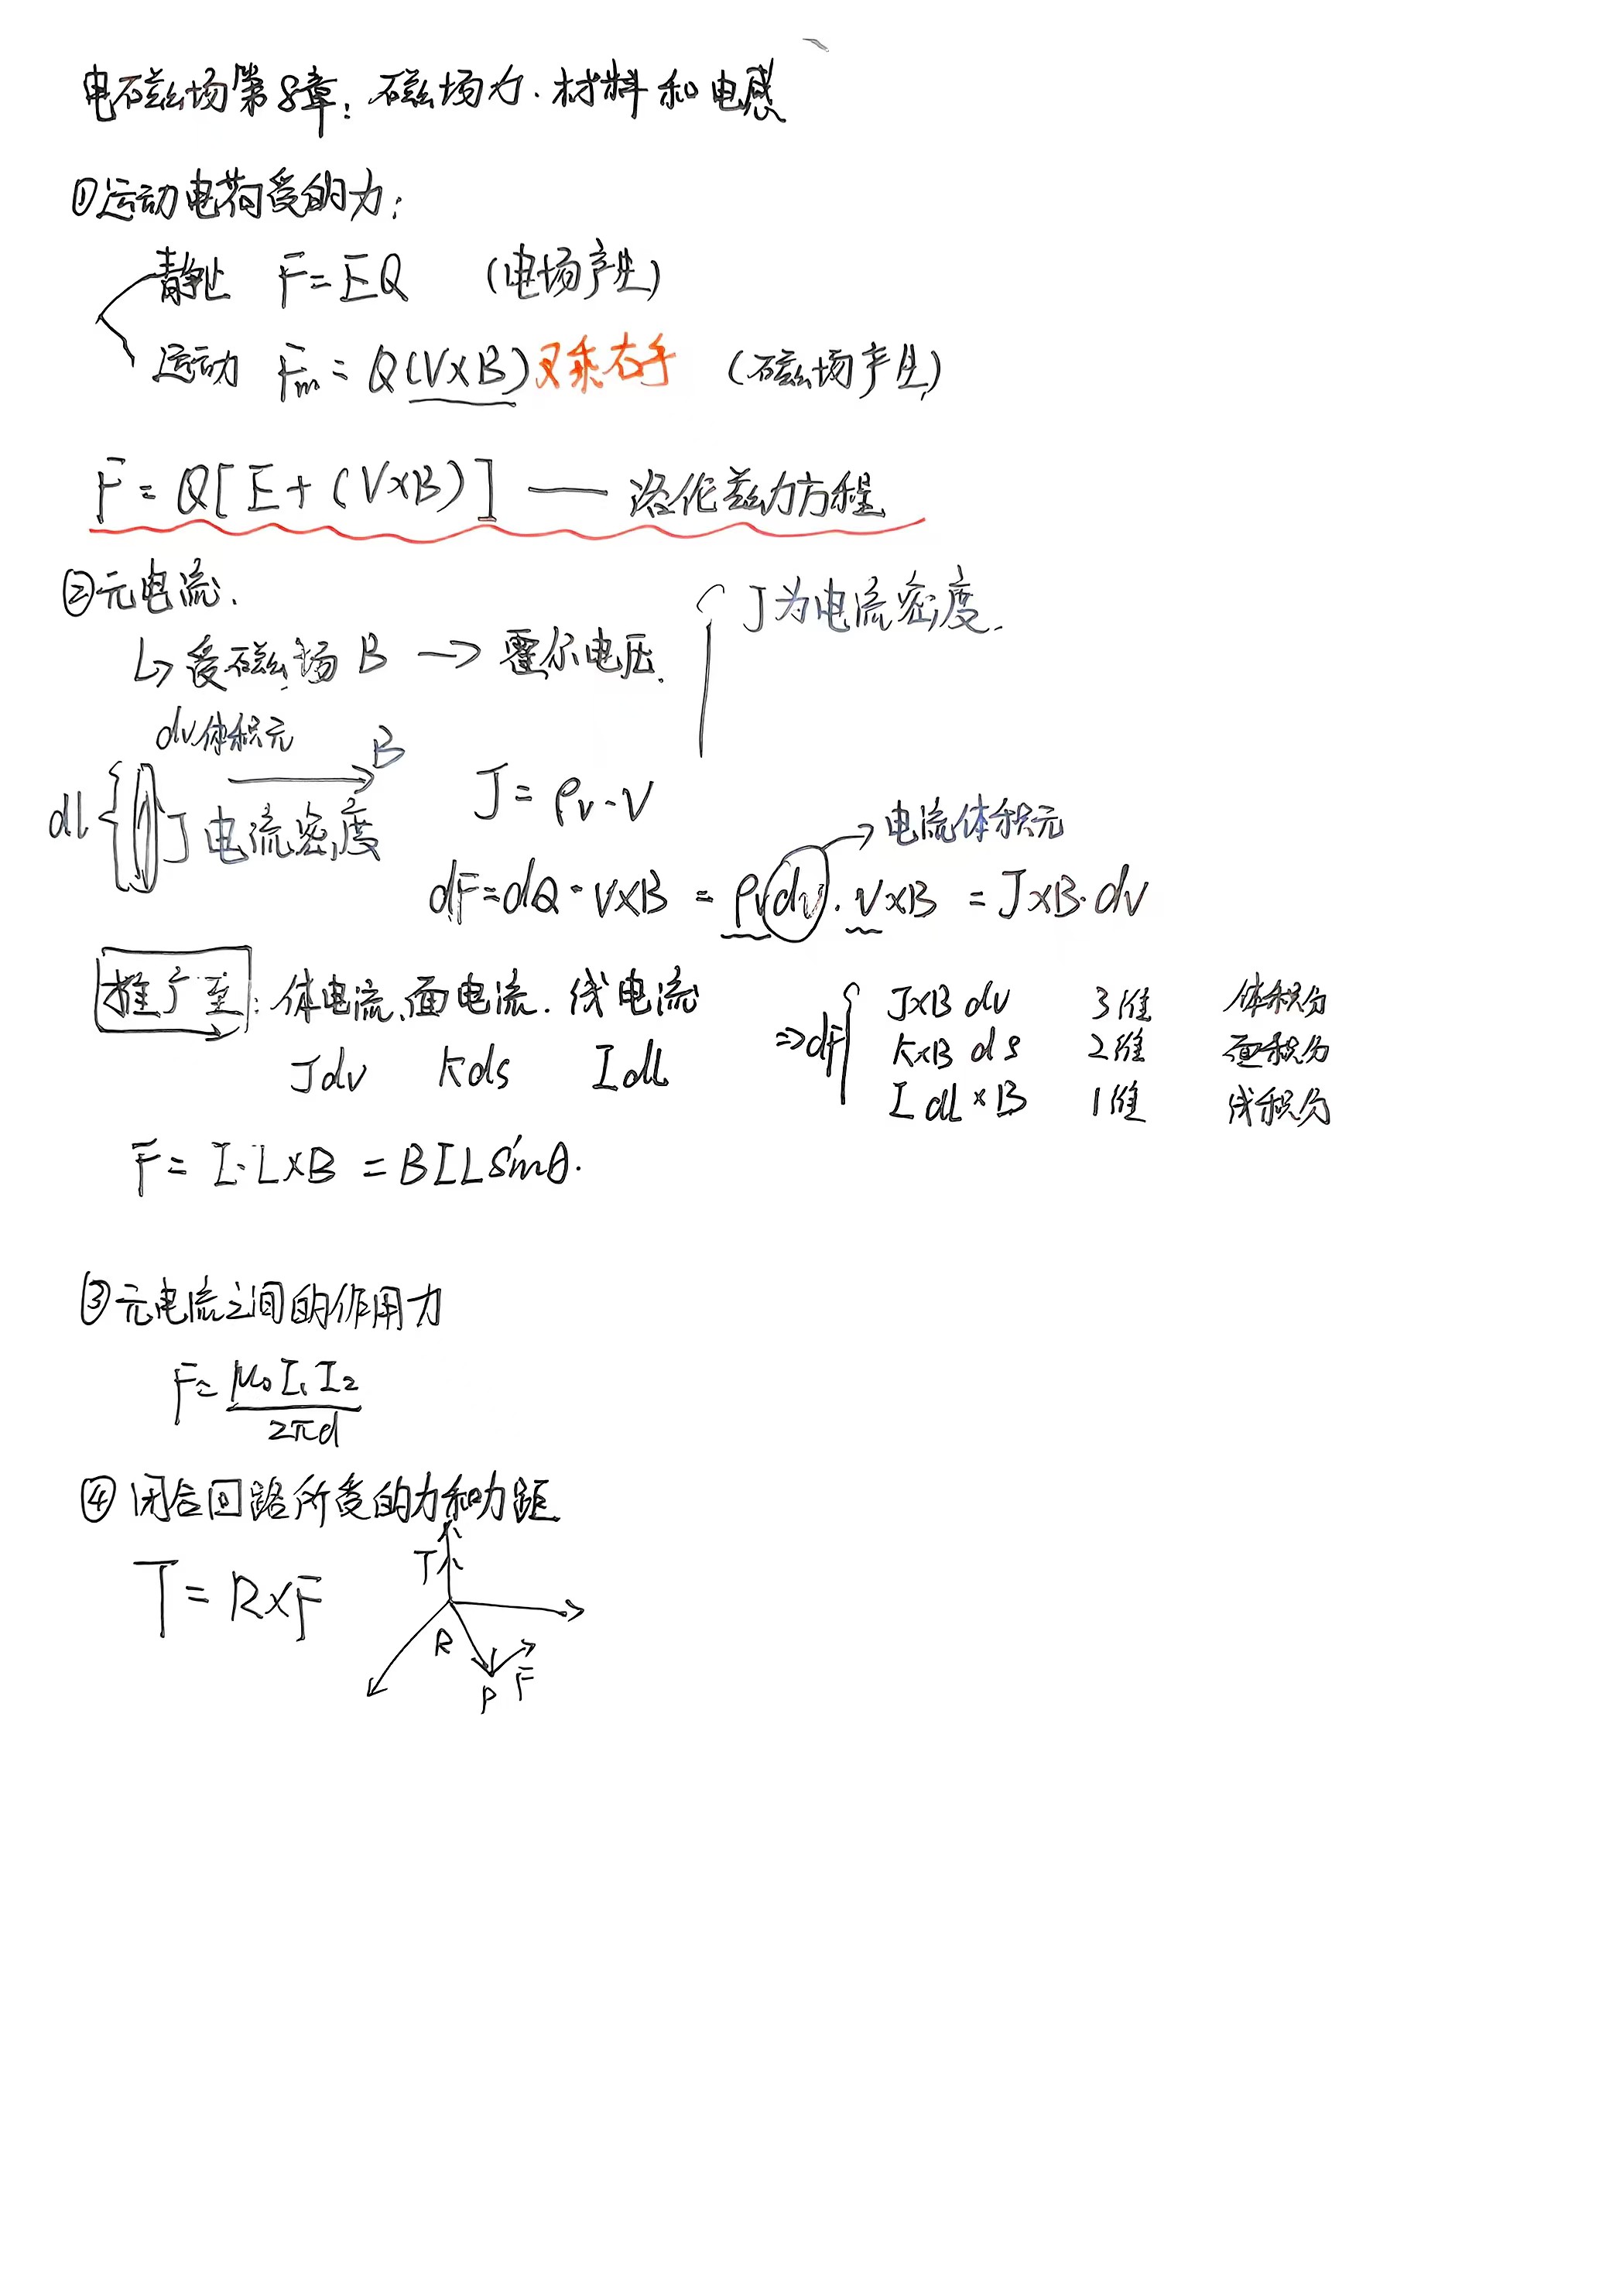 电磁场第8章：磁场力．材料和电感
①运动电荷受的力：
静止 F=EQ (电场产生)
运动 Fm=Q(V×B)叉乘右手 (磁场产生)
F=Q[E+(V×B)] — 洛伦兹力方程
②元电流.
J为电流密度.
↳受磁场B→霍尔电压.
dv体积元
B
dl{ J 电流密度
J=ρv·V
电流体积元
dF=dQ·V×B=ρvdv·V×B=J×B·dv
推广至：体电流、面电流．线电流
Jdv Kds IdL
⇒dF{
J×B dv 3维 体积分
K×B ds 2维 面积分
I dL×B 1维 线积分
F=I·L×B=BILsinθ.
③元电流之间的作用力
F=μ0I1I2/2πd
④闭合回路所受的力和力距
T=R×F
T
R
P
F